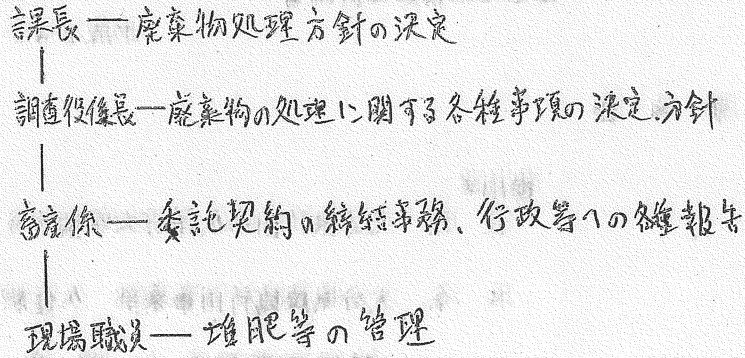 課長 ― 廃棄物処理方針の決定
調査役係長 ― 廃棄物の処理に関する各種事項の決定.方針
畜産係 ― 委託契約の締結事務、行政等への各種報告
現場職員 ― 堆肥等の管理